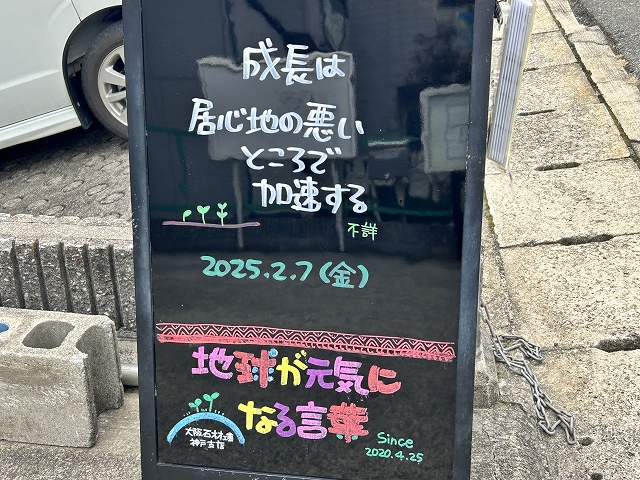 成長は
居心地の悪い
ところで
加速する
不詳
2025.2.7(金)
地球が元気に
なる言葉
大阪石材工業
神戸支店
Since
2020.4.25